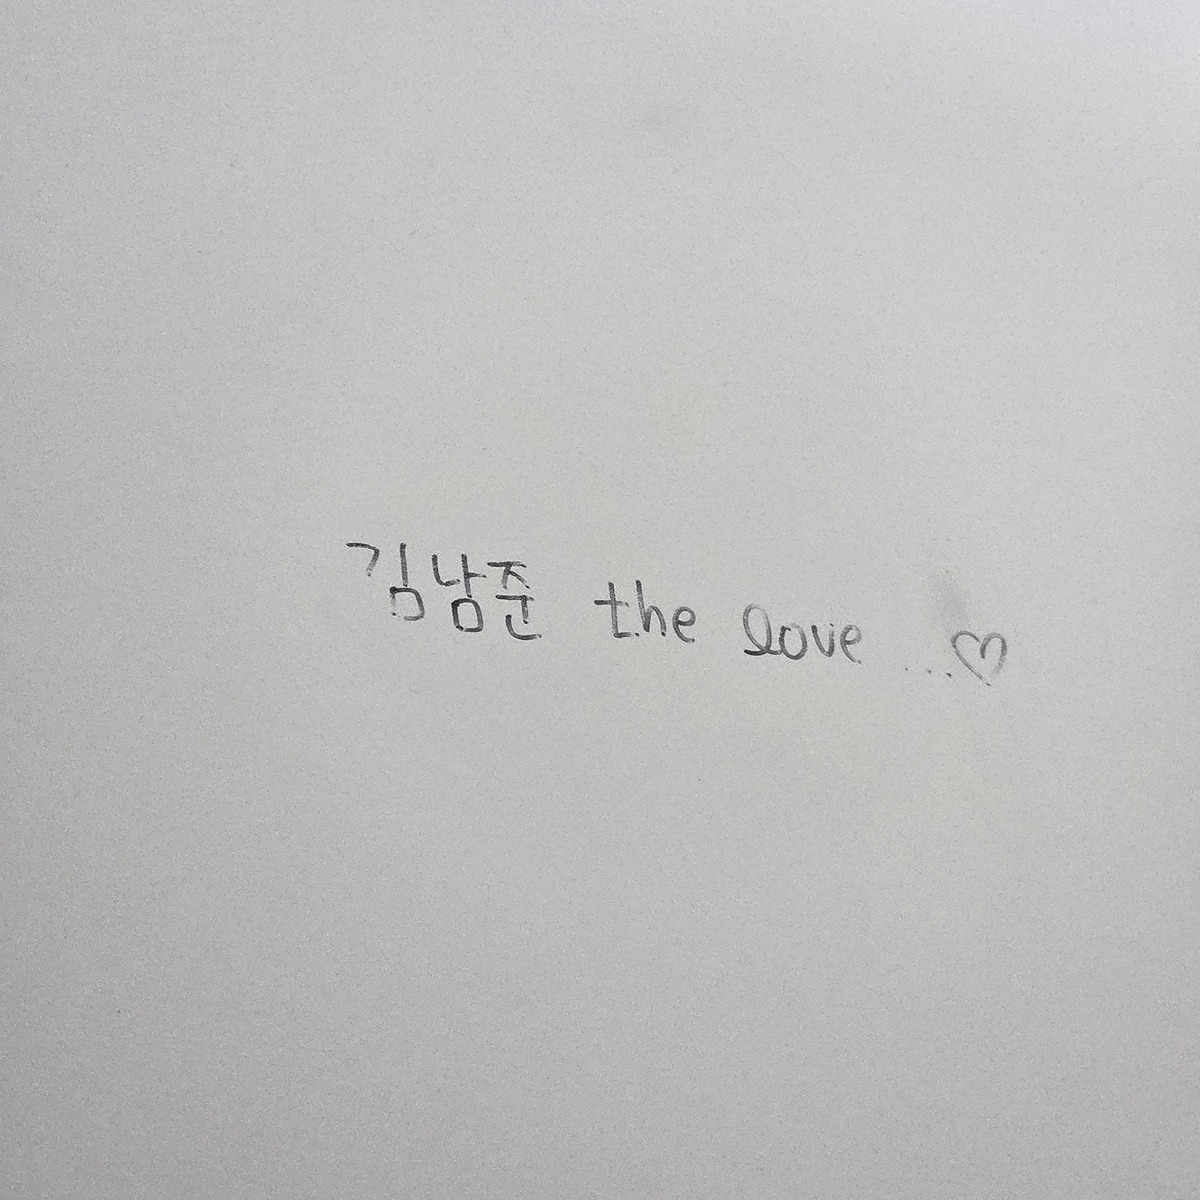 김남준 the love ...♡